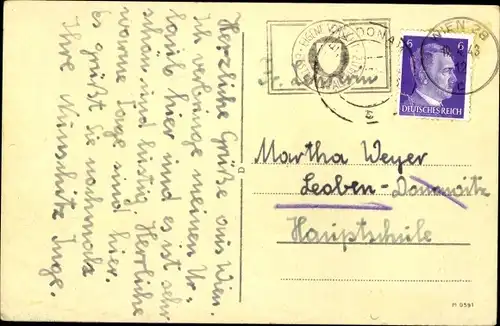 Herzliche Grüße aus Wien.
Ich verbringe meinen Ur-
laub hier und es ist sehr
schön und lustig. Herrliche
warme Tage sind hier.
Es grüßt Sie nochmals
Ihre
Inge.
WIEN
43
6
6
DEUTSCHES REICH
Martha Weyer
Leoben-Donawitz
Hauptschule